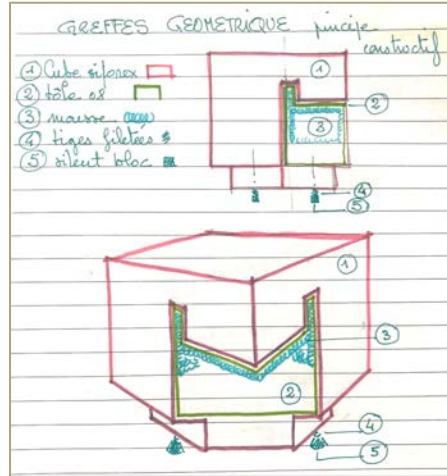 GREFFES GEOMETRIQUE pincipe
constructif
① Cube siporex
② tôle 08
③ mousse
④ tiges filetées
⑤ silent bloc
①
②
③
④
⑤
①
③
②
④
⑤